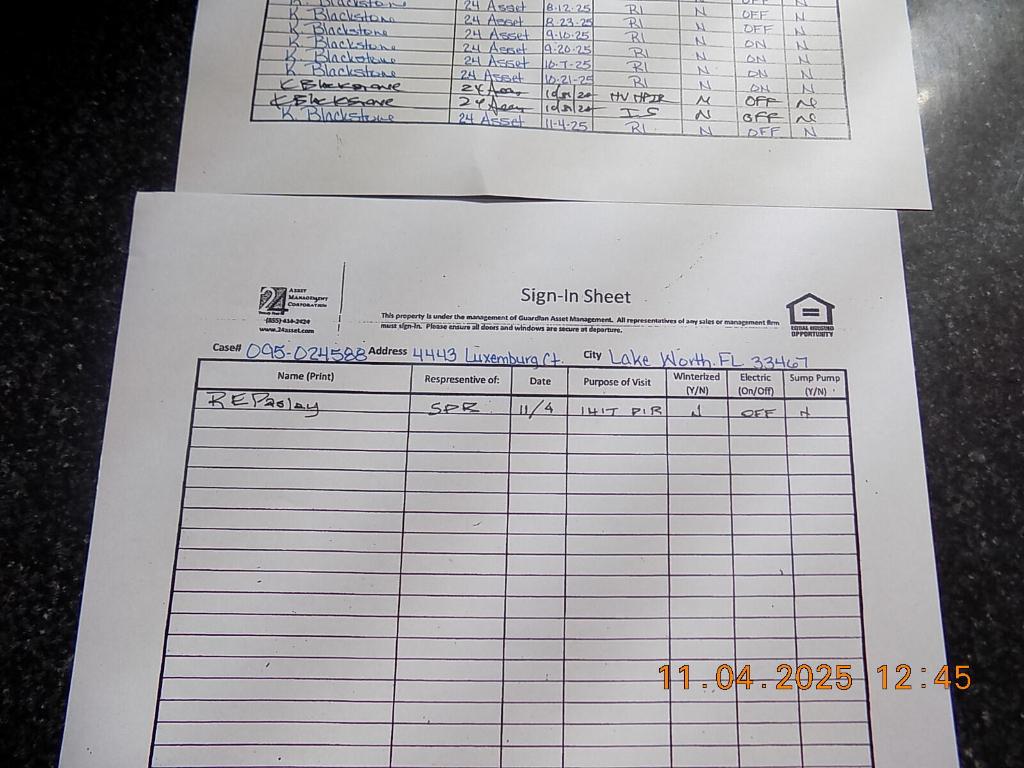 K. Blackstone 24 Asset 8-12-25 RI N OFF N
K. Blackstone 24 Asset 8-23-25 RI N OFF N
K. Blackstone 24 Asset 9-10-25 RI N ON N
K. Blackstone 24 Asset 9-20-25 RI N ON N
K. Blackstone 24 Asset 10-7-25 RI N ON N
K. Blackstone 24 Asset 10-21-25 RI N ON N
K Blackstone N OFF
K Blackstone IS N OFF
K. Blackstone 24 Asset 11-4-25 RI N OFF N
24 ASSET MANAGEMENT CORPORATION
(855)-414-2424
www.24asset.com
Sign-In Sheet
This property is under the management of Guardian Asset Management. All representatives of any sales or management firm
must sign-in. Please ensure all doors and windows are secure at departure.
EQUAL HOUSING OPPORTUNITY
Case# 095-024588 Address 4443 Luxemburg Ct. City Lake Worth, FL 33467
Name (Print) Respresentive of: Date Purpose of Visit Winterized (Y/N) Electric (On/Off) Sump Pump (Y/N)
SPR 11/4 PIR N OFF N
11.04.2025 12:45